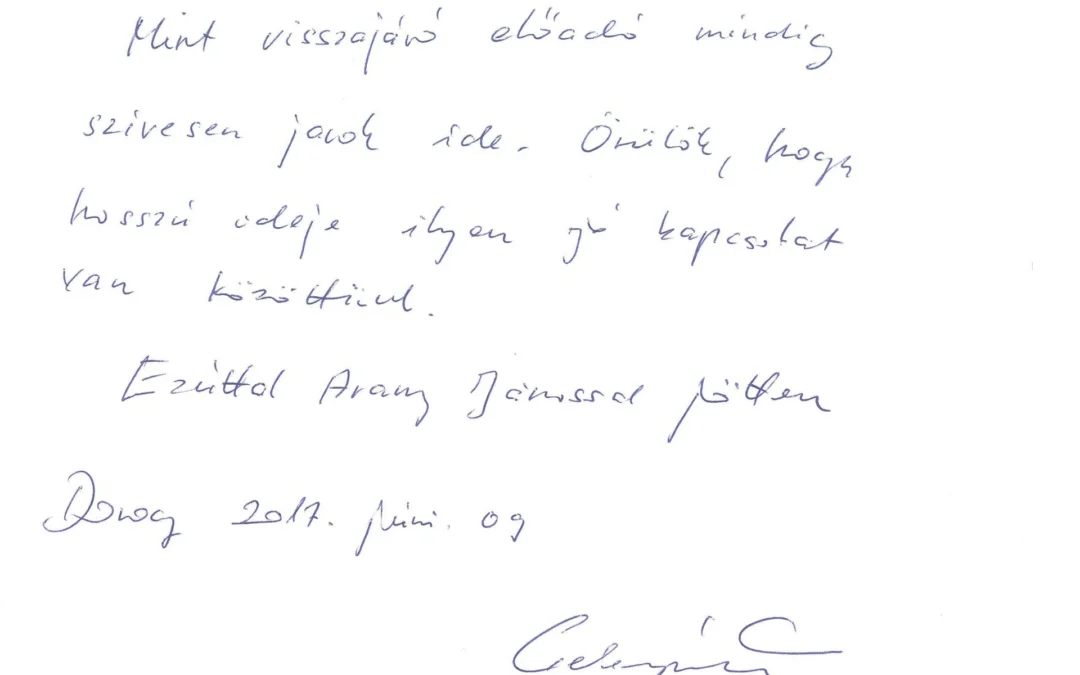 Mint visszajáró előadó mindig
szivesen jarok ide. Örülök, hogy
hosszú ideje ilyen jó kapcsolat
van közöttünk.
Ezúttal Arany Jánossal jöttem
Dorog 2017. júni. 09